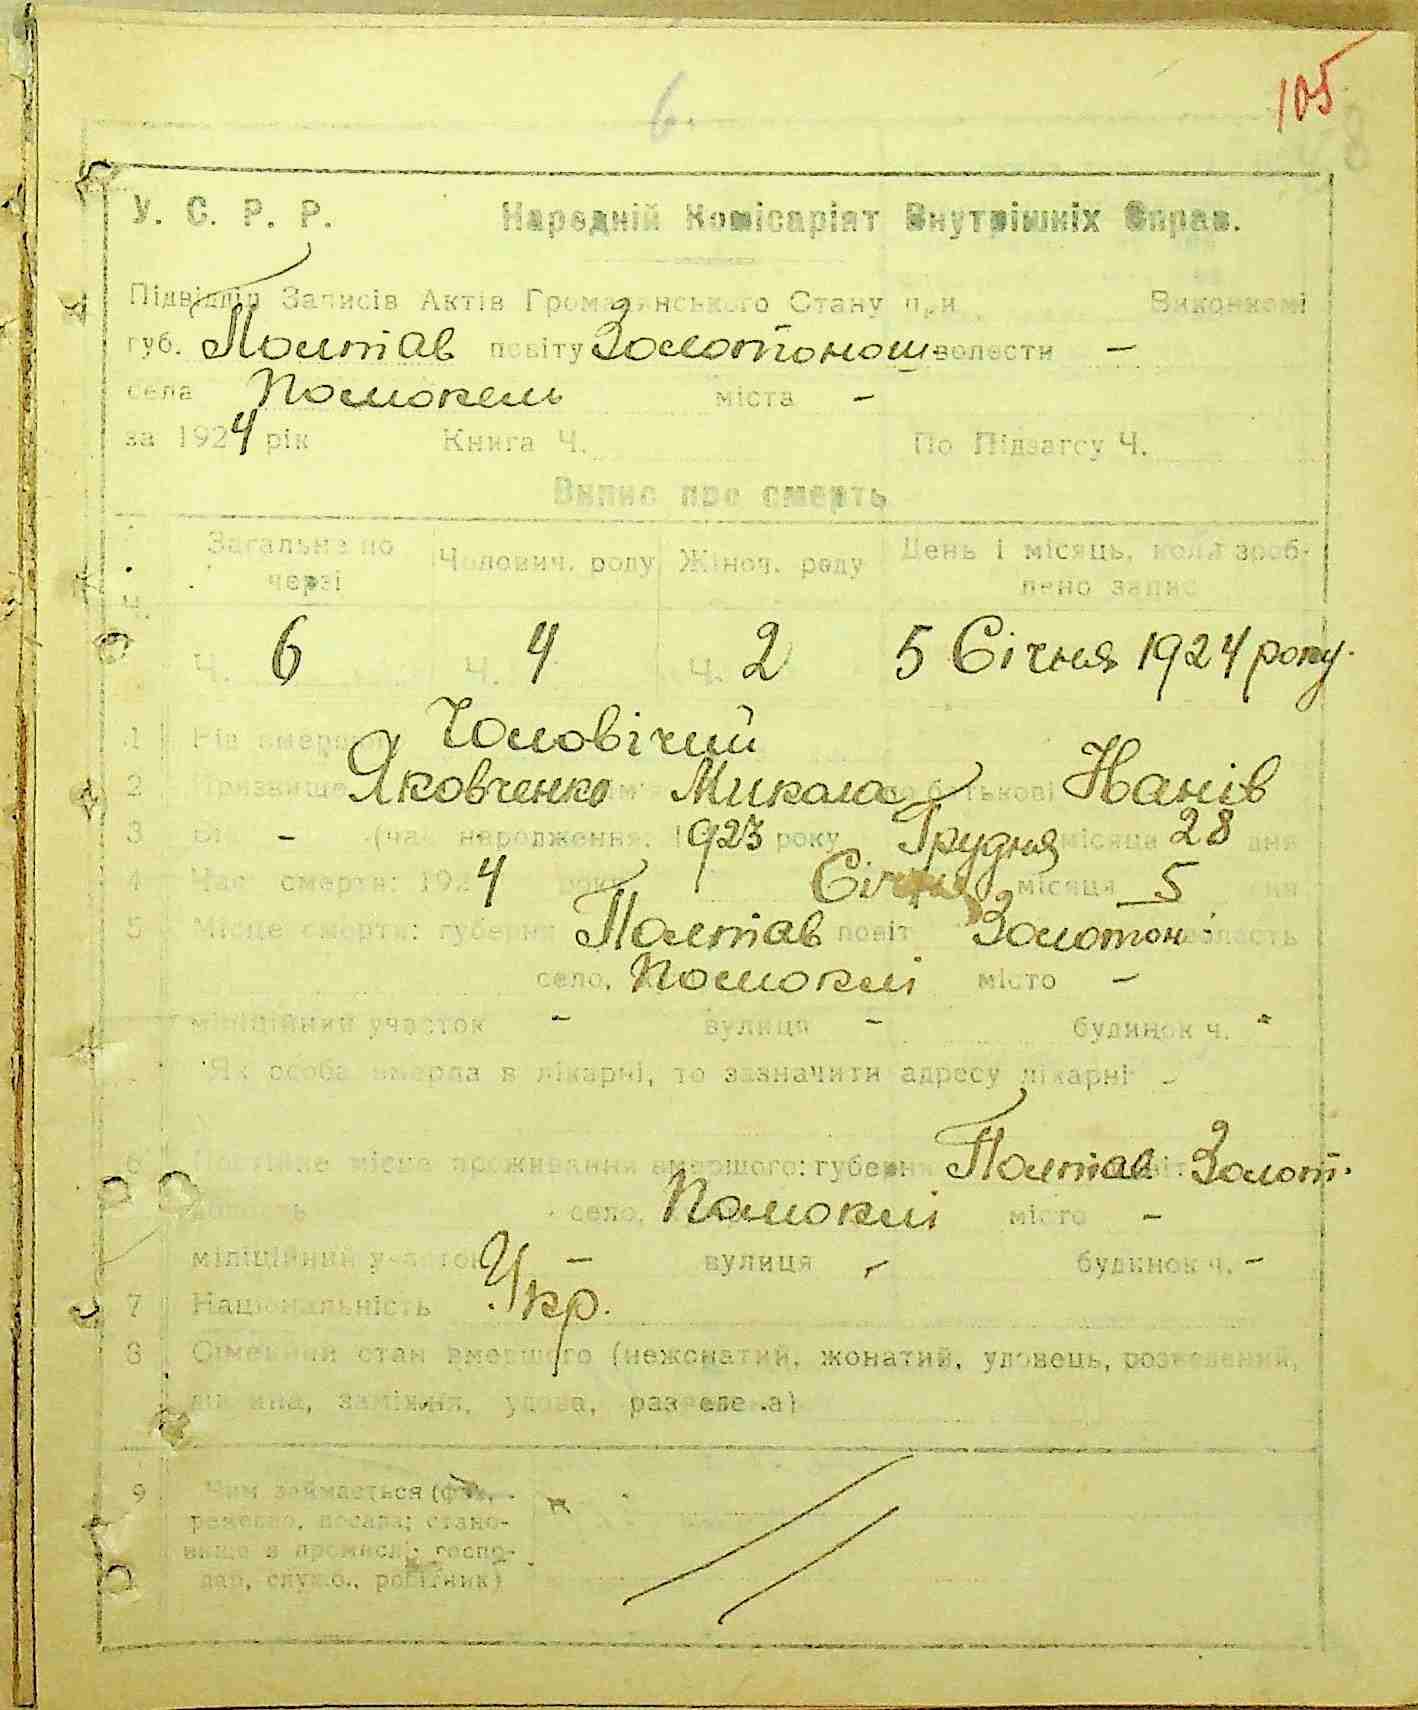 105
6.
У. С. Р. Р. Народній Комісаріят Внутрішніх Справ.
Підвідділ Записів Актів Громадянського Стану при Виконкомі
губ. Полтав повіту Золотонош волости -
села Помокель міста -
за 1924 рік Книга Ч. По Підзагсу Ч.
Випис про смерть
Загальне по черзі Чоловіч. роду Жіноч. роду День і місяць, коли зроблено запис
Ч. 6 Ч. 4 Ч. 2 5 Січня 1924 року.
1 Рід вмершого Чоловічий
2 Призвище Яковченко Микола по батькові Нанів
3 Вік - (час народження: 1923 року Грудня місяця 28 дня
4 Час смерти: 1924 року Січня місяця 5 дня
5 Місце смерти: губерня Полтав повіт Золотон. волость
село, Помоклі місто -
міліційний участок - вулиця - будинок ч. -
Як особа вмерла в лікарні, то зазначити адресу лікарні
6 Постійне місце проживання вмершого: губерня Полтав повіт Золот.
волость село, Помоклі місто -
міліційний участок - вулиця - будинок ч. -
7 Національність Укр.
8 Сімейний стан вмершого (нежонатий, жонатий, удовець, розведений,
дівчина, заміжня, удова, разведена)
9 Чим займається (фах,
ремесло, посада; стано-
вище в промислі; госпо-
дар, служб., робітник)